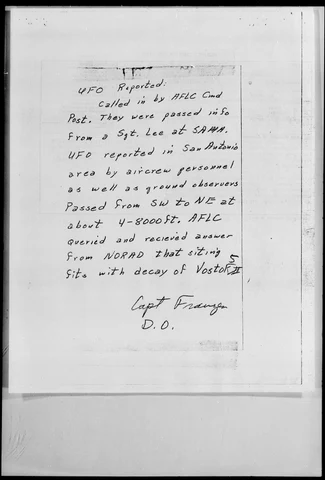 UFO Reported:
Called in by AFLC Cmd
Post. They were passed info
from a Sgt. Lee at SAMA.
UFO reported in San Antonio
area by aircrew personnel
as well as ground observers
Passed from SW to NE at
about 4-8000 ft. AFLC
queried and recieved answer
from NORAD that siting
fits with decay of Vostok
Capt
D.O.